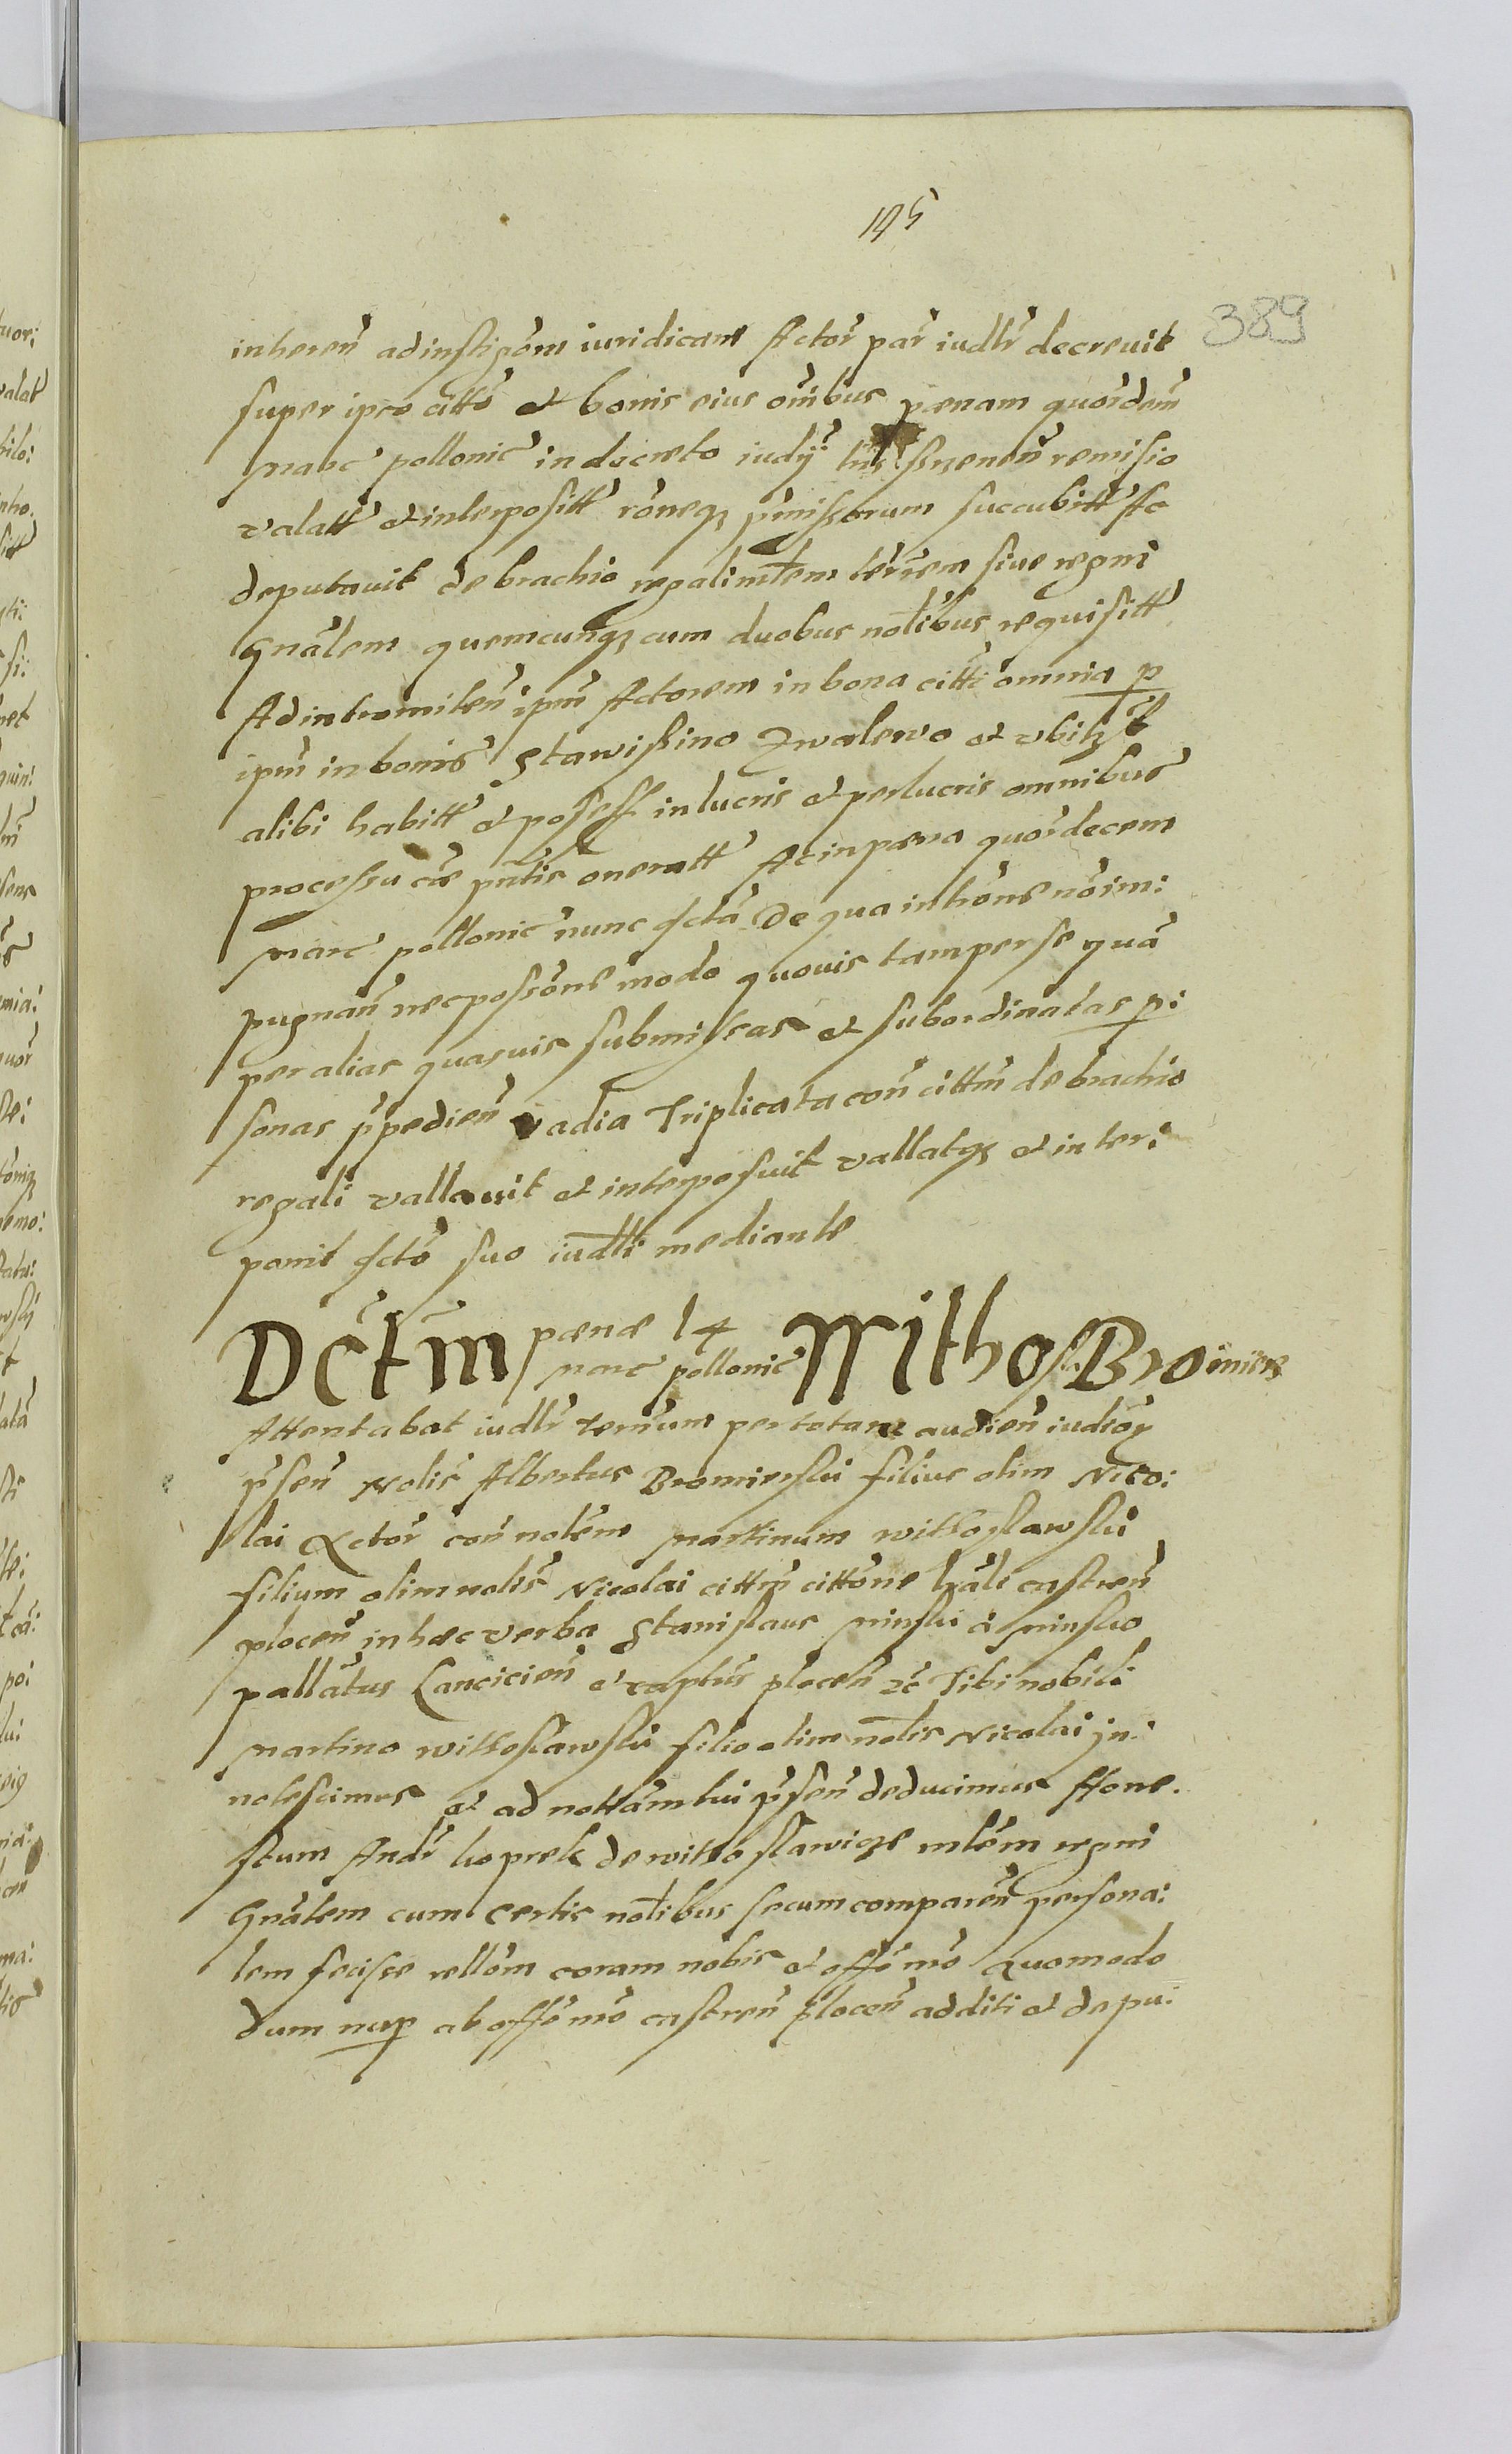 195
389
inheren̄ ad instigōm iuridicam Actor par iudlr decreuit
super ipso citto et bonis eius oīnibus pœnam quordam
marc pollonic in decreto iudÿ trīs Srzenen̄ remisio
valatt et interpositt rōneqz pmissorum succubitt Ac
deputauit de brachio regali mltem terrem siue regni
Gnālem quemcunqz cum duobus notībus requisitt
Ad intromiten̄ ipm Actorem in bona citti omnia p
ipm in bonis Stawissino Zwalewo et vbilz
alibi habitt et possess in lucris et perlucris omnibus
processu cāe pntis oneratt Ac in pœna quordecem
marc pollonic nunc dctā De qua intrōne nō im:
pugnan̄ nec possōne modo quouis tam per se quā
per alias quasuis submissas et subordinatas p:
sonas ppedien̄ vadia Triplicata con cittm de brachio
regali vallauit et interposuit vallatqz et inter:
ponit dcto suo iudlli mediante
Dctm pœnæ 14 marc pollonic Withos: Bromiers
Attentabat iudlr termum per totam audien̄ iudiōr
psen̄ Nolis Albertus Bromierski filius olim Nico:
lai Actor con nolēm Martinum withoslawski
filium olim nolis Nicolai cittm cittōne hāli castren̄
plocen̄ in hæc verba Stanislaus Minski à Minsko
pallātus Lancicien̄ et captus plocen̄ etc Tibi nobili
Martino withoslawski filio olim notis Nicolai in:
notescimus et ad nottām tui psen̄ deducimus Hone.
stum Andr koprek de withoslawicze mlēm regni
Gnālem cum certis notibus secum comparen̄ persona:
lem fecisse rellōm coram nobis et offo nro Quomodo
dum nup ab offo nro castren̄ plocen̄ additi et depu: